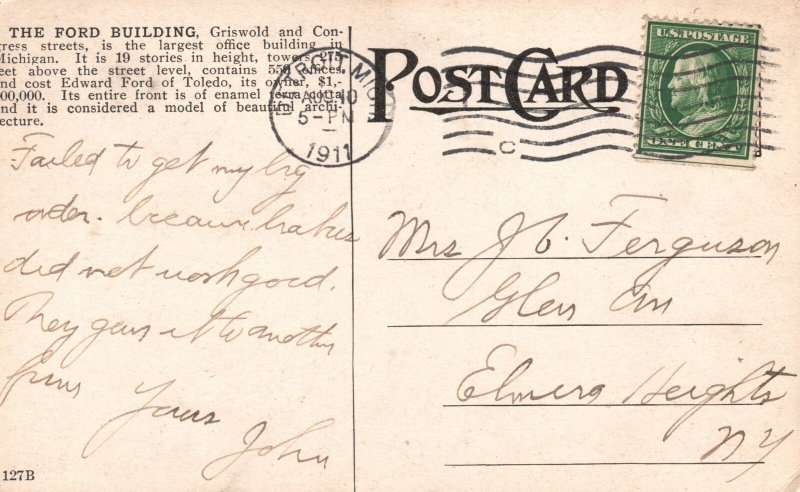 THE FORD BUILDING, Griswold and Con-
gress streets, is the largest office building in
Michigan. It is 19 stories in height, towers 275
feet above the street level, contains 550 offices
and cost Edward Ford of Toledo, its owner, $1,-
000,000. Its entire front is of enamel terra cotta
and it is considered a model of beautiful archi-
tecture.
POST CARD
DETROIT, MICH
AUG 10
5-PM
1911
C
U.S. POSTAGE
ONE CENT
Failed to get my big
order. because brakes
did not work good.
They gave it to another
firm
Yours
John
Mrs J C. Ferguson
Glen
Elmira Heights
NY
127B